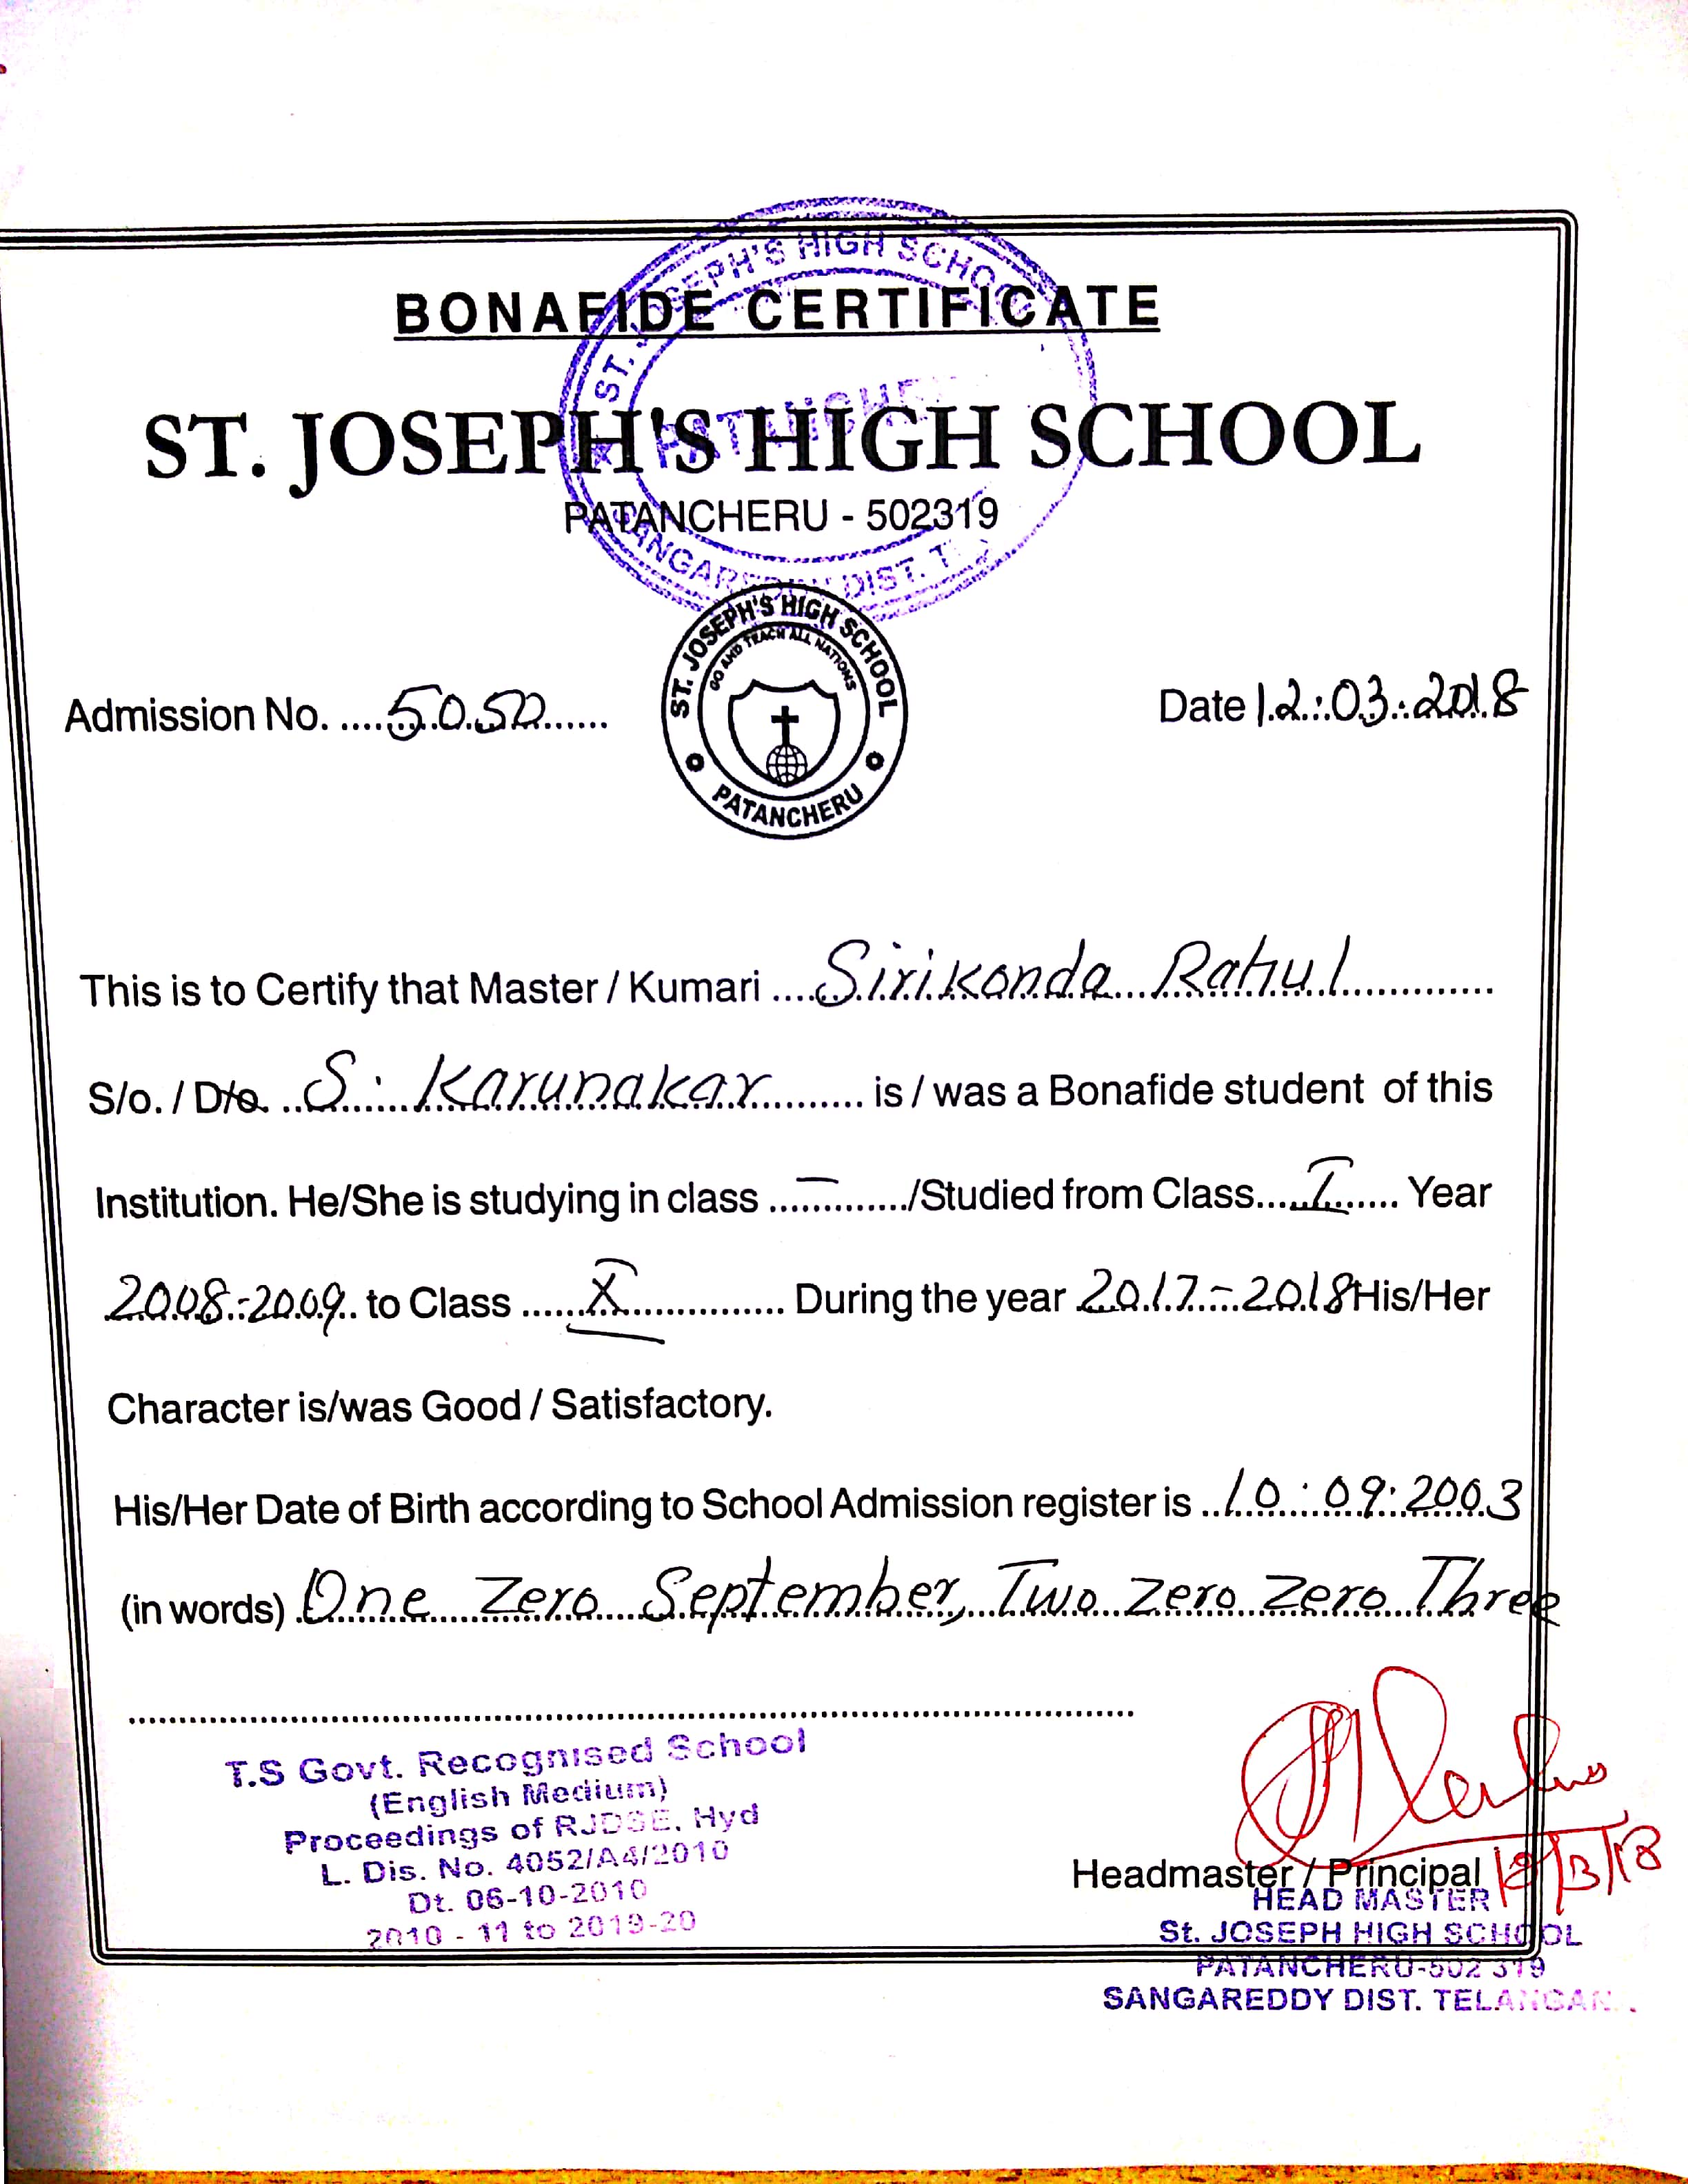 ST. JOSEPH'S HIGH SCHOOL
BONAFIDE CERTIFICATE
ST. JOSEPH'S HIGH SCHOOL
PATANCHERU - 502319
DIST.
ST. JOSEPH'S HIGH SCHOOL
GO AND TEACH ALL NATIONS
PATANCHERU
Admission No. .....5050......
Date 12:03:2018
This is to Certify that Master / Kumari ....Sirikonda Rahul..............
S/o. / D/o. ..S. Karunakar.......... is / was a Bonafide student of this
Institution. He/She is studying in class ...—......../Studied from Class.....I...... Year
2008-2009.. to Class ......X............... During the year 2017-2018 His/Her
Character is/was Good / Satisfactory.
His/Her Date of Birth according to School Admission register is ..10:09:2003
(in words) One Zero September, Two Zero Zero Three
T.S Govt. Recognised School
(English Medium)
Proceedings of RJDSE. Hyd
L. Dis. No. 4052/A4/2010
Dt. 06-10-2010
2010 - 11 to 2019-20
Headmaster / Principal 12/3/18
HEAD MASTER
St. JOSEPH HIGH SCHOOL
PATANCHERU-502 319
SANGAREDDY DIST. TELANGANA.